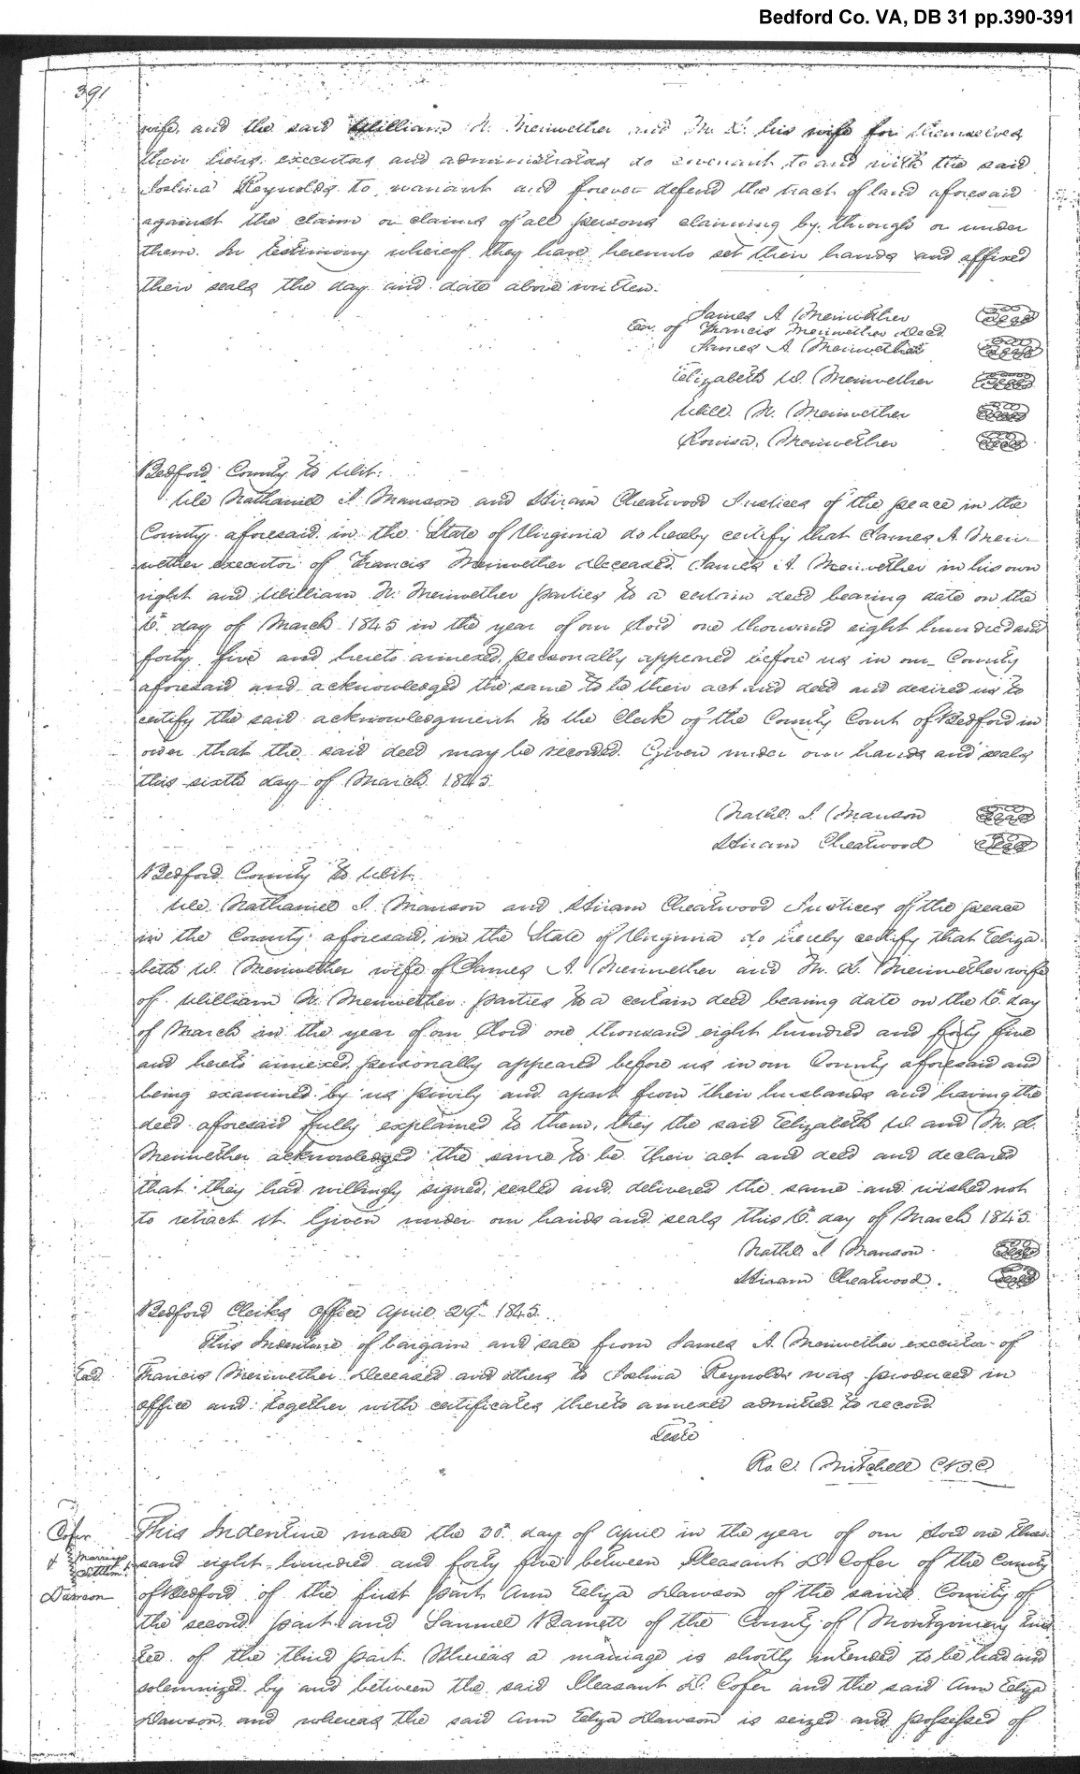 Bedford Co. VA, DB 31 pp.390-391
391
wife, and the said William N. Meriwether and M. L. his wife for themselves
their heirs executors and administrators do covenant to and with the said
Joslina Reynolds to warrant and forever defend the tract of land aforesaid
against the claim or claims of all persons claiming by, through or under
them. In testimony whereof they have hereunto set their hands and affixed
their seals the day and date above written.
James A Meriwether Seal
Exr. of Francis Meriwether Decd.
James A Meriwether Seal
Elizabeth W. Meriwether Seal
Will. N. Meriwether Seal
Louisa Meriwether Seal
Bedford County To Wit:
We Nathaniel J. Manson and Hiram Cheatwood Justices of the peace in the
County aforesaid in the State of Virginia do hereby certify that James A. Meri-
wether executor of Francis Meriwether deceased James A. Meriwether in his own
right and William N. Meriwether parties to a certain deed bearing date on the
6th day of March 1845 in the year of our Lord one thousand eight hundred and
forty five and hereto annexed, personally appeared before us in our County
aforesaid and acknowledged the same to be their act and deed and desired us to
certify the said acknowledgment to the Clerk of the County Court of Bedford in
order that the said deed may be recorded. Given under our hands and seals
this sixth day of March 1845.
Nathl. J. Manson Seal
Hiram Cheatwood Seal
Bedford County To Wit.
We Nathaniel J. Manson and Hiram Cheatwood Justices of the peace
in the County aforesaid, in the State of Virginia do hereby certify that Eliza-
beth W. Meriwether wife of James A. Meriwether and M. L. Meriwether wife
of William N. Meriwether parties to a certain deed bearing date on the 6th day
of March in the year of our Lord one thousand eight hundred and forty five
and hereto annexed, personally appeared before us in our County aforesaid and
being examined by us privily and apart from their husbands and having the
deed aforesaid fully explained to them, they the said Elizabeth W and M. L.
Meriwether acknowledged the same to be their act and deed and declared
that they had willingly signed, sealed and delivered the same and wished not
to retract it. Given under our hands and seals this 6th day of March 1845
Nathl J Manson Seal
Hiram Cheatwood. Seal
Bedford Clerks office April 29th 1845.
This Indenture of bargain and sale from James A. Meriwether executor of
Exd. Francis Meriwether Deceased and others to Joslina Reynolds was produced in
office and together with certificates thereto annexed admitted to record
Teste
Ro. C. Mitchell CBC
Cofer
& Marriage Settlemt.
Dawson
This Indenture made the 20th day of April in the year of our Lord one thou-
sand eight hundred and forty five between Pleasant D Cofer of the County
of Bedford of the first part Ann Eliza Dawson of the same County of
the second part and Samuel Barnett of the County of Montgomery trus
tee of the third part. Whereas a marriage is shortly intended to be had and
solemnized by and between the said Pleasant D. Cofer and the said Ann Eliza
Dawson, and whereas the said Ann Eliza Dawson is seized and possessed of